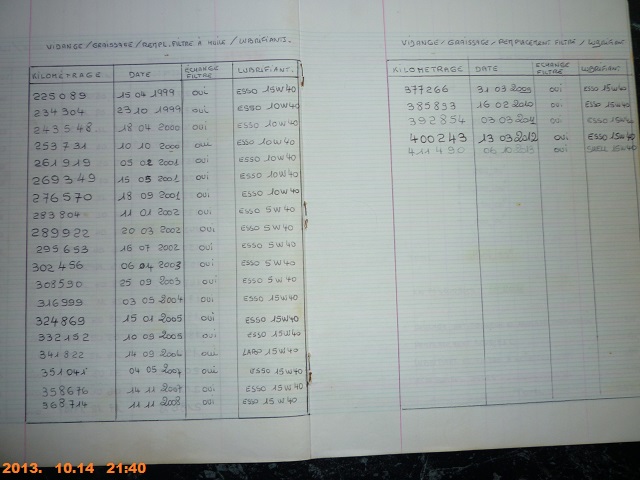 VIDANGE/GRAISSAGE/REMPL.FILTRE À HUILE/LUBRIFIANTS.
KILOMÉTRAGE DATE ÉCHANGE FILTRE LUBRIFIANT.
225089 15 04 1999 OUI ESSO 15W40
234304 23 10 1999 OUI ESSO 10W40
243548 18 04 2000 OUI ESSO 10W40
253731 10 10 2000 OUI ESSO 10W40
261919 05 02 2001 OUI ESSO 10W40
269349 15 05 2001 OUI ESSO 10W40
276570 18 09 2001 OUI ESSO 10W40
283804 11 01 2002 OUI ESSO 5W40
289922 20 03 2002 OUI ESSO 5W40
295653 16 07 2002 OUI ESSO 5W40
302456 06 04 2003 OUI ESSO 5W40
308590 25 09 2003 OUI ESSO 5W40
316999 03 05 2004 OUI ESSO 10W40
324869 15 01 2005 OUI ESSO 15W40
332152 10 09 2005 OUI ESSO 15W40
341822 14 09 2006 OUI 15W40
04 05 2007 OUI ESSO 15W40
358676 14 11 2007 OUI ESSO 15W40
368714 11 11 2008 OUI ESSO 15W40
VIDANGE/GRAISSAGE/REMPLACEMENT FILTRE/LUBRIFIANT
KILOMETRAGE DATE ECHANGE FILTRE LUBRIFIANT
377266 31 03 2009 OUI ESSO 15W40
385833 16 02 2010 OUI ESSO 15W40
392854 03 03 2011 OUI ESSO 15W40
400243 13 03 2012 OUI ESSO 15W40
411490 2013 OUI SHELL 15W40
2013. 10.14 21:40